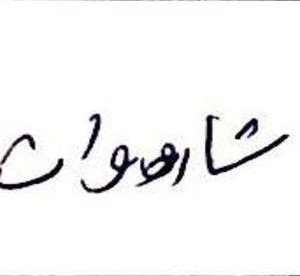 شارهوان